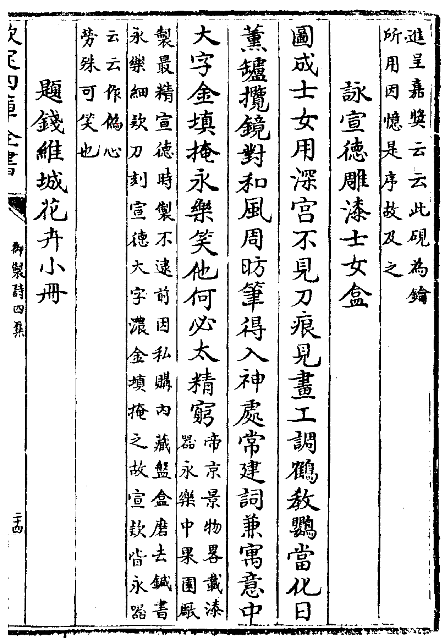 進呈嘉奬云云此硯為鑰
所用因憶是序故及之
詠宣德雕漆士女盒
圖成士女用深宮不見刀痕見畫工調鶴教鸚當化日
薰鑪攬鏡對和風周昉筆得入神處常建詞兼寓意中
大字金填掩永樂笑他何必太精窮
帝京景物畧載漆
器永樂中果園厰
製最精宣德時製不逮前因私購內藏盤盒磨去鍼書
永樂細欵刀刻宣德大字濃金填掩之故宣欵皆永器
云云作偽心
勞殊可笑也
題錢維城花卉小冊
欽定四庫全書
御製詩四集